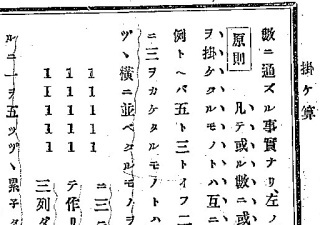 掛ケ算
數ニ通ズル事實ナリ、左ノ
原則 凡テ或ル數ニ或
ヲ掛ケタルモノトハ互ニ
例トヘバ五ト三トイフ二
ニ三ヲカケタルモノトハ
ヅヽ橫ニ並ベタルモノヲ
1 1 1 1 1
1 1 1 1 1
1 1 1 1 1
ニ三
テ作リ
三列ダ
ルニ一ヲ五ツヅヽ累子ダ